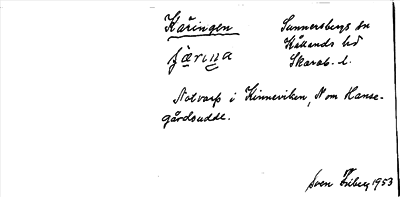 Käringen
Sunnersbergs sn
Kållands hd
Skarab. l.
çæriŋa
Notvarp i Kinneviken, N om Hanse-
gårdsudde.
Sven Friberg 1953